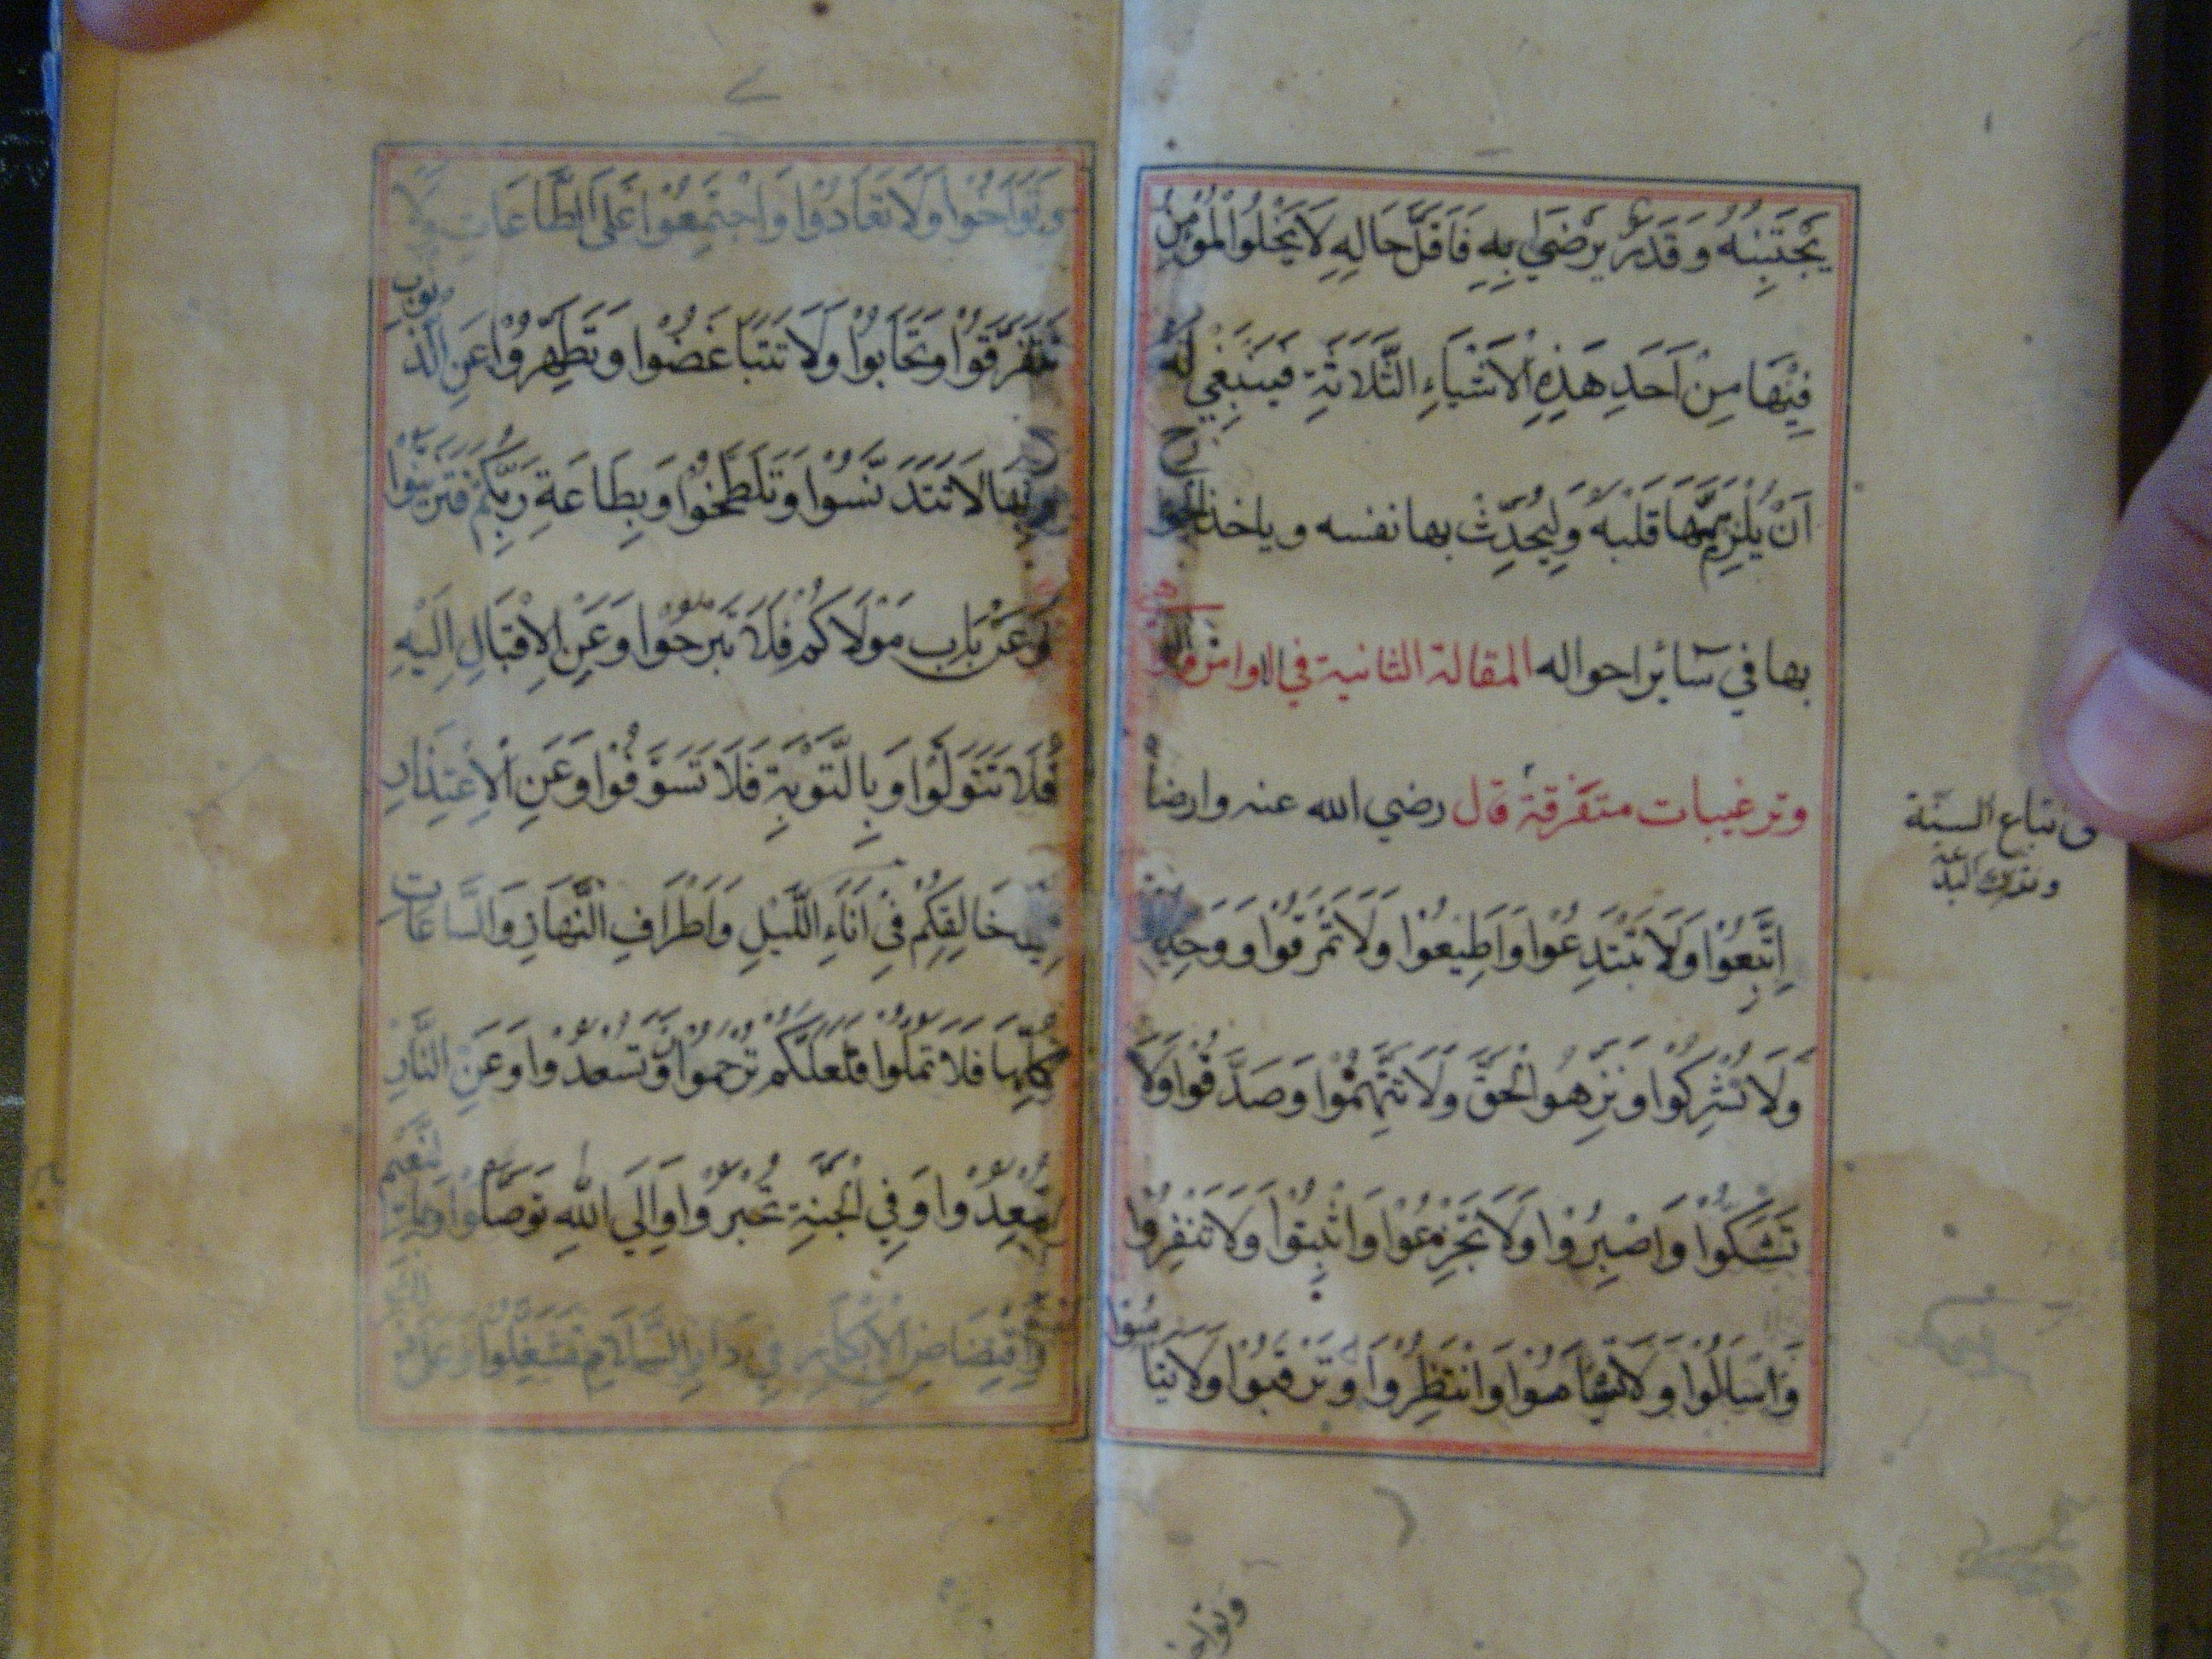 يَجْتَنِبُهُ وَقَدَرٌ يَرْضَى بِهِ فَاَقَلُّ حَالِهِ لَا يَخْلُوا الْمُؤْمِنُ
فِيْهَا مِنْ اَحَدِ هَذِهِ الْاَشْيَاءِ الثَّلَاثَةِ فَيَنْبَغِي لَهُ
اَنْ يُلْزِمَهَا قَلْبَهُ وَلِيُحَدِّثْ بها نفسه وياخذ
بها في سَائر احواله المقالة الثانية في اوامر
وترغيبات متفرقة قال رضي الله عنه وارضاه
اِتَّبِعُوْا وَلَا تَبْتَدِعُوْا وَاَطِيْعُوْا وَلَا تَمْرُقُوْا وَوَحِّدُوْا
وَلَا تُشْرِكُوْا وَنَزِّهُوا الْحَقَّ وَلَا تَتَّهِمُوْا وَصَدِّقُوْا وَلَا
تَشُكُّوْا وَاصْبِرُوْا وَلَا تَجْزَعُوْا وَاثْبُتُوْا وَلَا تَنْفِرُوْا
وَاسْاَلُوْا وَلَا تَسْاَمُوْا وَانْتَظِرُوْا وَتَرَقَّبُوْا وَلَا تَيْاَسُوْا
في اتباع السنة
وترك البدعة
وتواخوا
وَتَوَاخَوْا وَلَا تَعَادَوْا وَاجْتَمِعُوْا عَلَى الطَّاعَاتِ وَلَا
تَتَفَرَّقُوْا وَتَحَابُّوْا وَلَا تَتَبَاغَضُوْا وَتَطَهَّرُوْا عَنِ الذُّنُوْبِ
وَبِهَا لَا تَتَدَنَّسُوْا وَتَلَطَّخُوْا وَبِطَاعَةِ رَبِّكُمْ فَتَزَيَّنُوْا
وَعَنْ بَابِ مَوْلَاكُمْ فَلَا تَبْرَحُوْا وَعَنِ الْاِقْبَالِ اِلَيْهِ
فَلَا تَتَوَلَّوْا وَبِالتَّوْبَةِ فَلَا تَسَوَّفُوْا وَعَنِ الْاِعْتِذَارِ
اِلَى خَالِقِكُمْ فِي اٰنَاءِ اللَّيْلِ وَاَطْرَافِ النَّهَارِ وَالسَّاعَاتِ
كُلِّهَا فَلَا تَمَلُّوْا فَلَعَلَّكُمْ تُرْحَمُوْا وَتُسْعَدُوْا وَعَنِ النَّارِ
تُبْعَدُوْا وَفِي الْجَنَّةِ تُحْبَرُوْا وَاِلَى اللهِ تُوصَلُوْا
وَاقْتِضَاضِ الْاَبْكَارِ فِي دَارِ السَّلَامِ تُشْغَلُوْا وَعَلَى